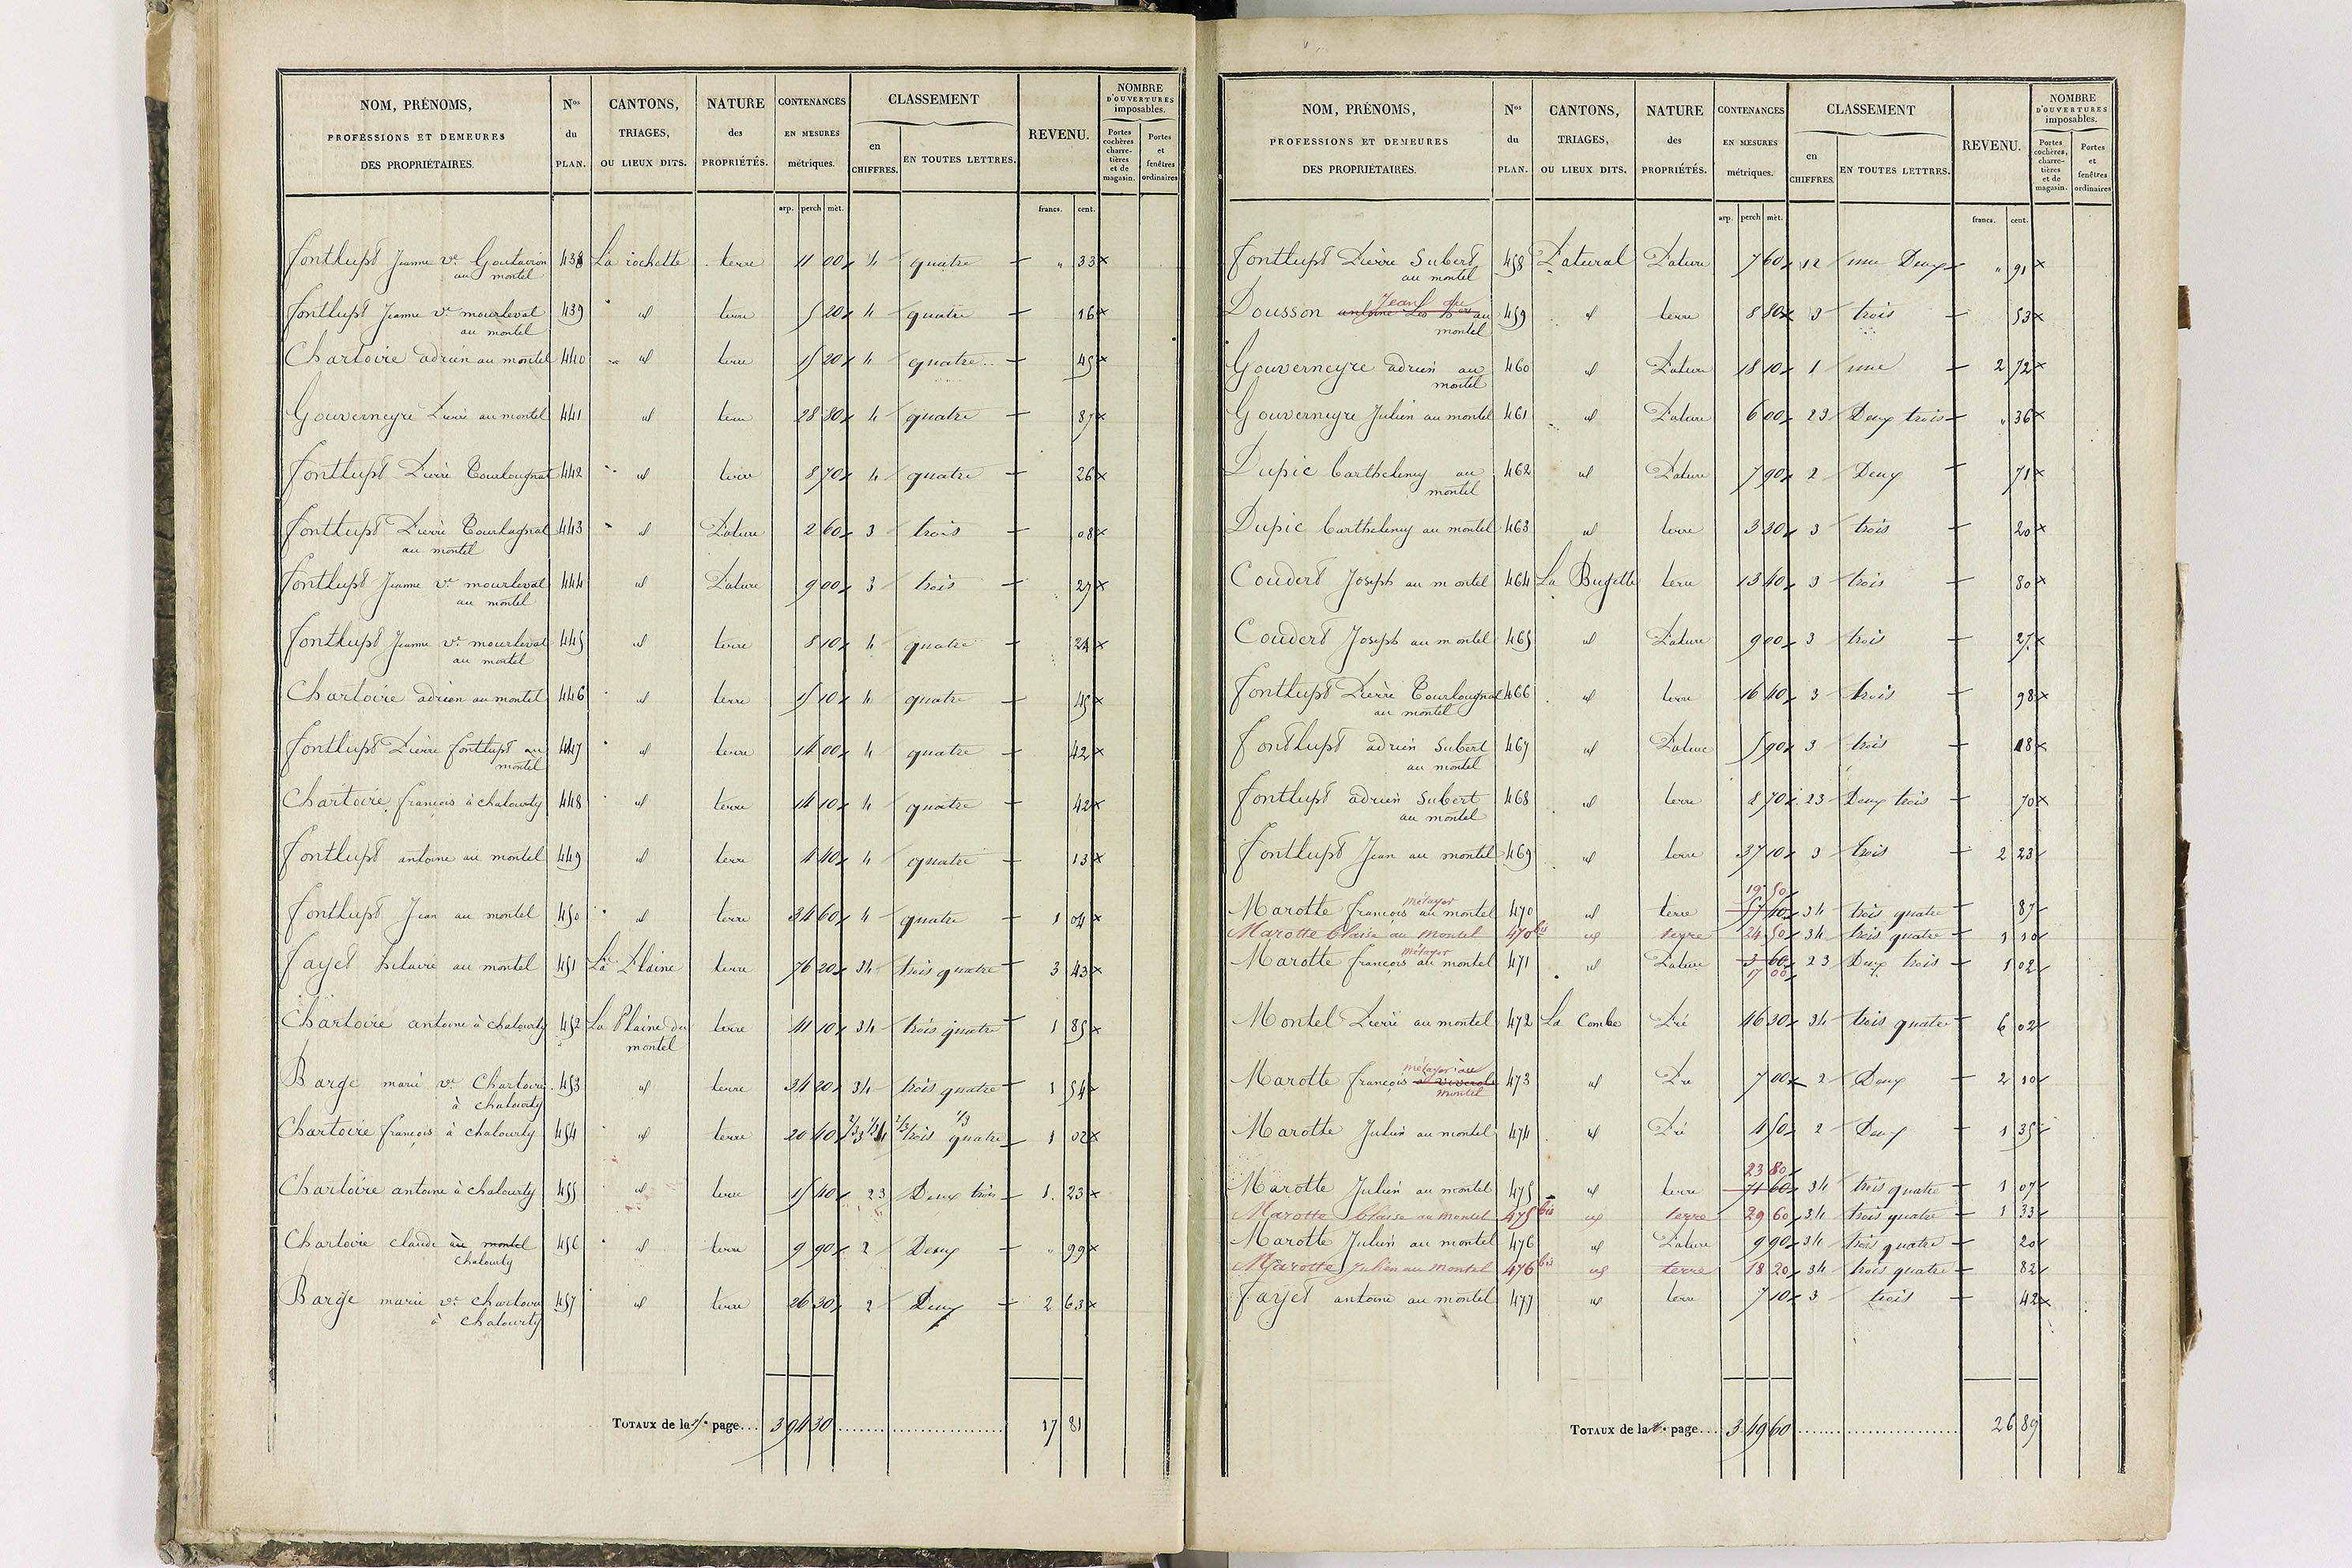 NOM, PRÉNOMS, PROFESSIONS ET DEMEURES DES PROPRIÉTAIRES. | Nos du PLAN. | CANTONS, TRIAGES, OU LIEUX DITS. | NATURE des PROPRIÉTÉS. | CONTENANCES EN MESURES métriques. | CLASSEMENT en CHIFFRES. | EN TOUTES LETTRES. | REVENU. | NOMBRE D'OUVERTURES imposables. Portes cochères charretières et de magasin. | Portes et fenêtres ordinaires
arp. perch mèt. francs. cent.
fontlupt Jeanne ve Goutairon au montel 438 La rochette terre 11 00 4 quatre " 33
fontlupt Jeanne ve mourleval au montel 439 id terre 5 20 4 quatre 16
Chartoire adrien au montel 440 id terre 15 20 4 quatre 45
Gouverneyre Pierre au montel 441 id terre 28 80 4 quatre 87
fontlupt Pierre Tourlougnat 442 id terre 8 70 4 quatre 26
fontlupt Pierre Tourlagnat au montel 443 id Pature 2 60 3 trois 08
fontlupt Jeanne ve mourleval au montel 444 id Pature 9 00 3 trois 27
fontlupt Jeanne ve mourleval au montel 445 id terre 8 10 4 quatre 24
Chartoire adrien au montel 446 id terre 15 10 4 quatre 45
fontlupt Pierre fontlupt au montel 447 id terre 14 00 4 quatre 42
Chartoire françois à chalourty 448 id terre 14 10 4 quatre 42
fontlupt antoine au montel 449 id terre 4 40 4 quatre 13
fontlupt Jean au montel 450 id terre 34 60 4 quatre 1 04
fayet hilaire au montel 451 La Plaine terre 76 20 34 trois quatre 3 43
Chartoire antoine à chalourty 452 La Plaine du montel terre 41 10 34 trois quatre 1 85
Barge marie ve Chartoire à chalourty 453 id terre 34 20 34 trois quatre 1 54
Chartoire françois à chalourty 454 id terre 20 40 2/3 3 1/3 4 2/3 trois 1/3 quatre 1 02
Chartoire antoine à chalourty 455 id terre 15 40 23 Deux trois 1 23
Chartoire claude au montel chalourty 456 id terre 9 90 2 Deux " 99
Barge marie ve chartoire à chalourty 457 id terre 26 30 2 Deux 2 63
TOTAUX de la 5e page.... 3 94 30 17 81
NOM, PRÉNOMS, PROFESSIONS ET DEMEURES DES PROPRIÉTAIRES. | Nos du PLAN. | CANTONS, TRIAGES, OU LIEUX DITS. | NATURE des PROPRIÉTÉS. | CONTENANCES EN MESURES métriques. | CLASSEMENT en CHIFFRES. | EN TOUTES LETTRES. | REVENU. | NOMBRE D'OUVERTURES imposables. Portes cochères, charretières et de magasin. | Portes et fenêtres ordinaires
arp. perch mèt. francs. cent.
fontlupt Pierre Subert au montel 458 Patural Pature 7 60 12 une Deux " 91
Dousson antoine les hers Jean du au montel 459 id terre 8 80 3 trois 53
Gouverneyre adrien au montel 460 id Pature 18 10 1 une 2 72
Gouverneyre Julien au montel 461 id Pature 6 00 23 Deux trois " 36
Dupic barthelemy au montel 462 id Pature 7 90 2 Deux 71
Dupic barthelemy au montel 463 id terre 3 30 3 trois 20
Coudert Joseph au montel 464 La Bugette terre 13 40 3 trois 80
Coudert Joseph au montel 465 id Pature 9 00 3 trois 27
fontlupt Pierre Tourlougnat au montel 466 id terre 16 40 3 trois 98
fontlupt adrien Subert au montel 467 id Pature 5 90 3 trois 18
fontlupt adrien Subert au montel 468 id terre 8 70 23 Deux trois 70
fontlupt Jean au montel 469 id terre 37 10 3 trois 2 23
Marotte françois métayer au montel 470 id terre 19 50 57 40 34 trois quatre 87
Marotte blaise au montel 470 bis id terre 24 50 34 trois quatre 1 10
Marotte françois métayer au montel 471 id Pature 3 60 17 00 23 Deux trois 1 02
Montel Pierre au montel 472 La Combe Pré 46 30 34 trois quatre 6 02
Marotte françois métayer au montel 473 id Pré 7 00 2 Deux 2 10
Marotte Julien au montel 474 id Pré 4 50 2 Deux 1 35
Marotte Julien au montel 475 id terre 23 80 71 60 34 trois quatre 1 07
Marotte blaise au montel 475 bis id terre 29 60 34 trois quatre 1 33
Marotte Julien au montel 476 id Pature 9 90 34 trois quatre 20
Marotte Julien au montel 476 bis id terre 18 20 34 trois quatre 82
fayet antoine au montel 477 id terre 7 10 3 trois 42
TOTAUX de la 6e page.... 3 49 60 26 89